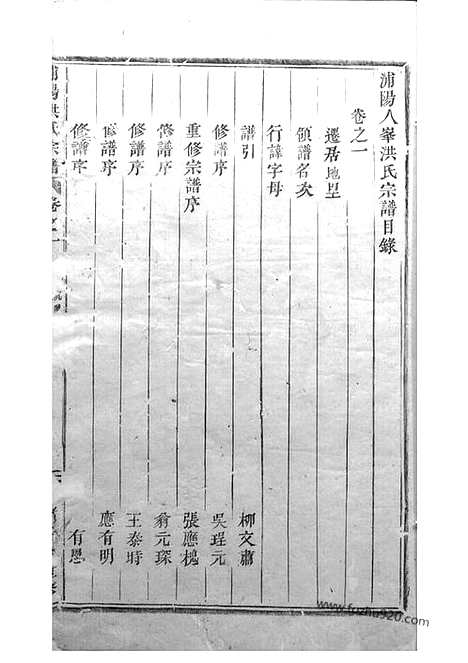 浦陽八峯洪氏宗譜目錄
卷之一
遷居地里
領譜名次
行諱字母
譜引 柳文肅
修譜序 吳珵元
重修宗譜序 張應槐
修譜序 翁元琛
修譜序 王泰時
修譜序 應有明
修譜序 有恩
浦陽洪氏宗譜 卷之一
www.fuzhu920.com